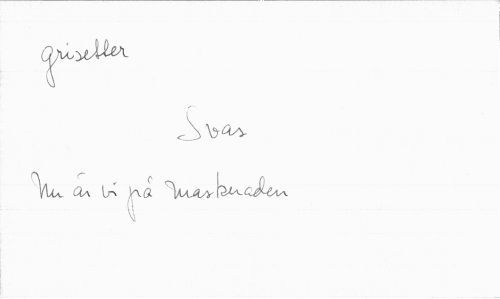 grisetter
Svas
Nu är vi på maskeraden